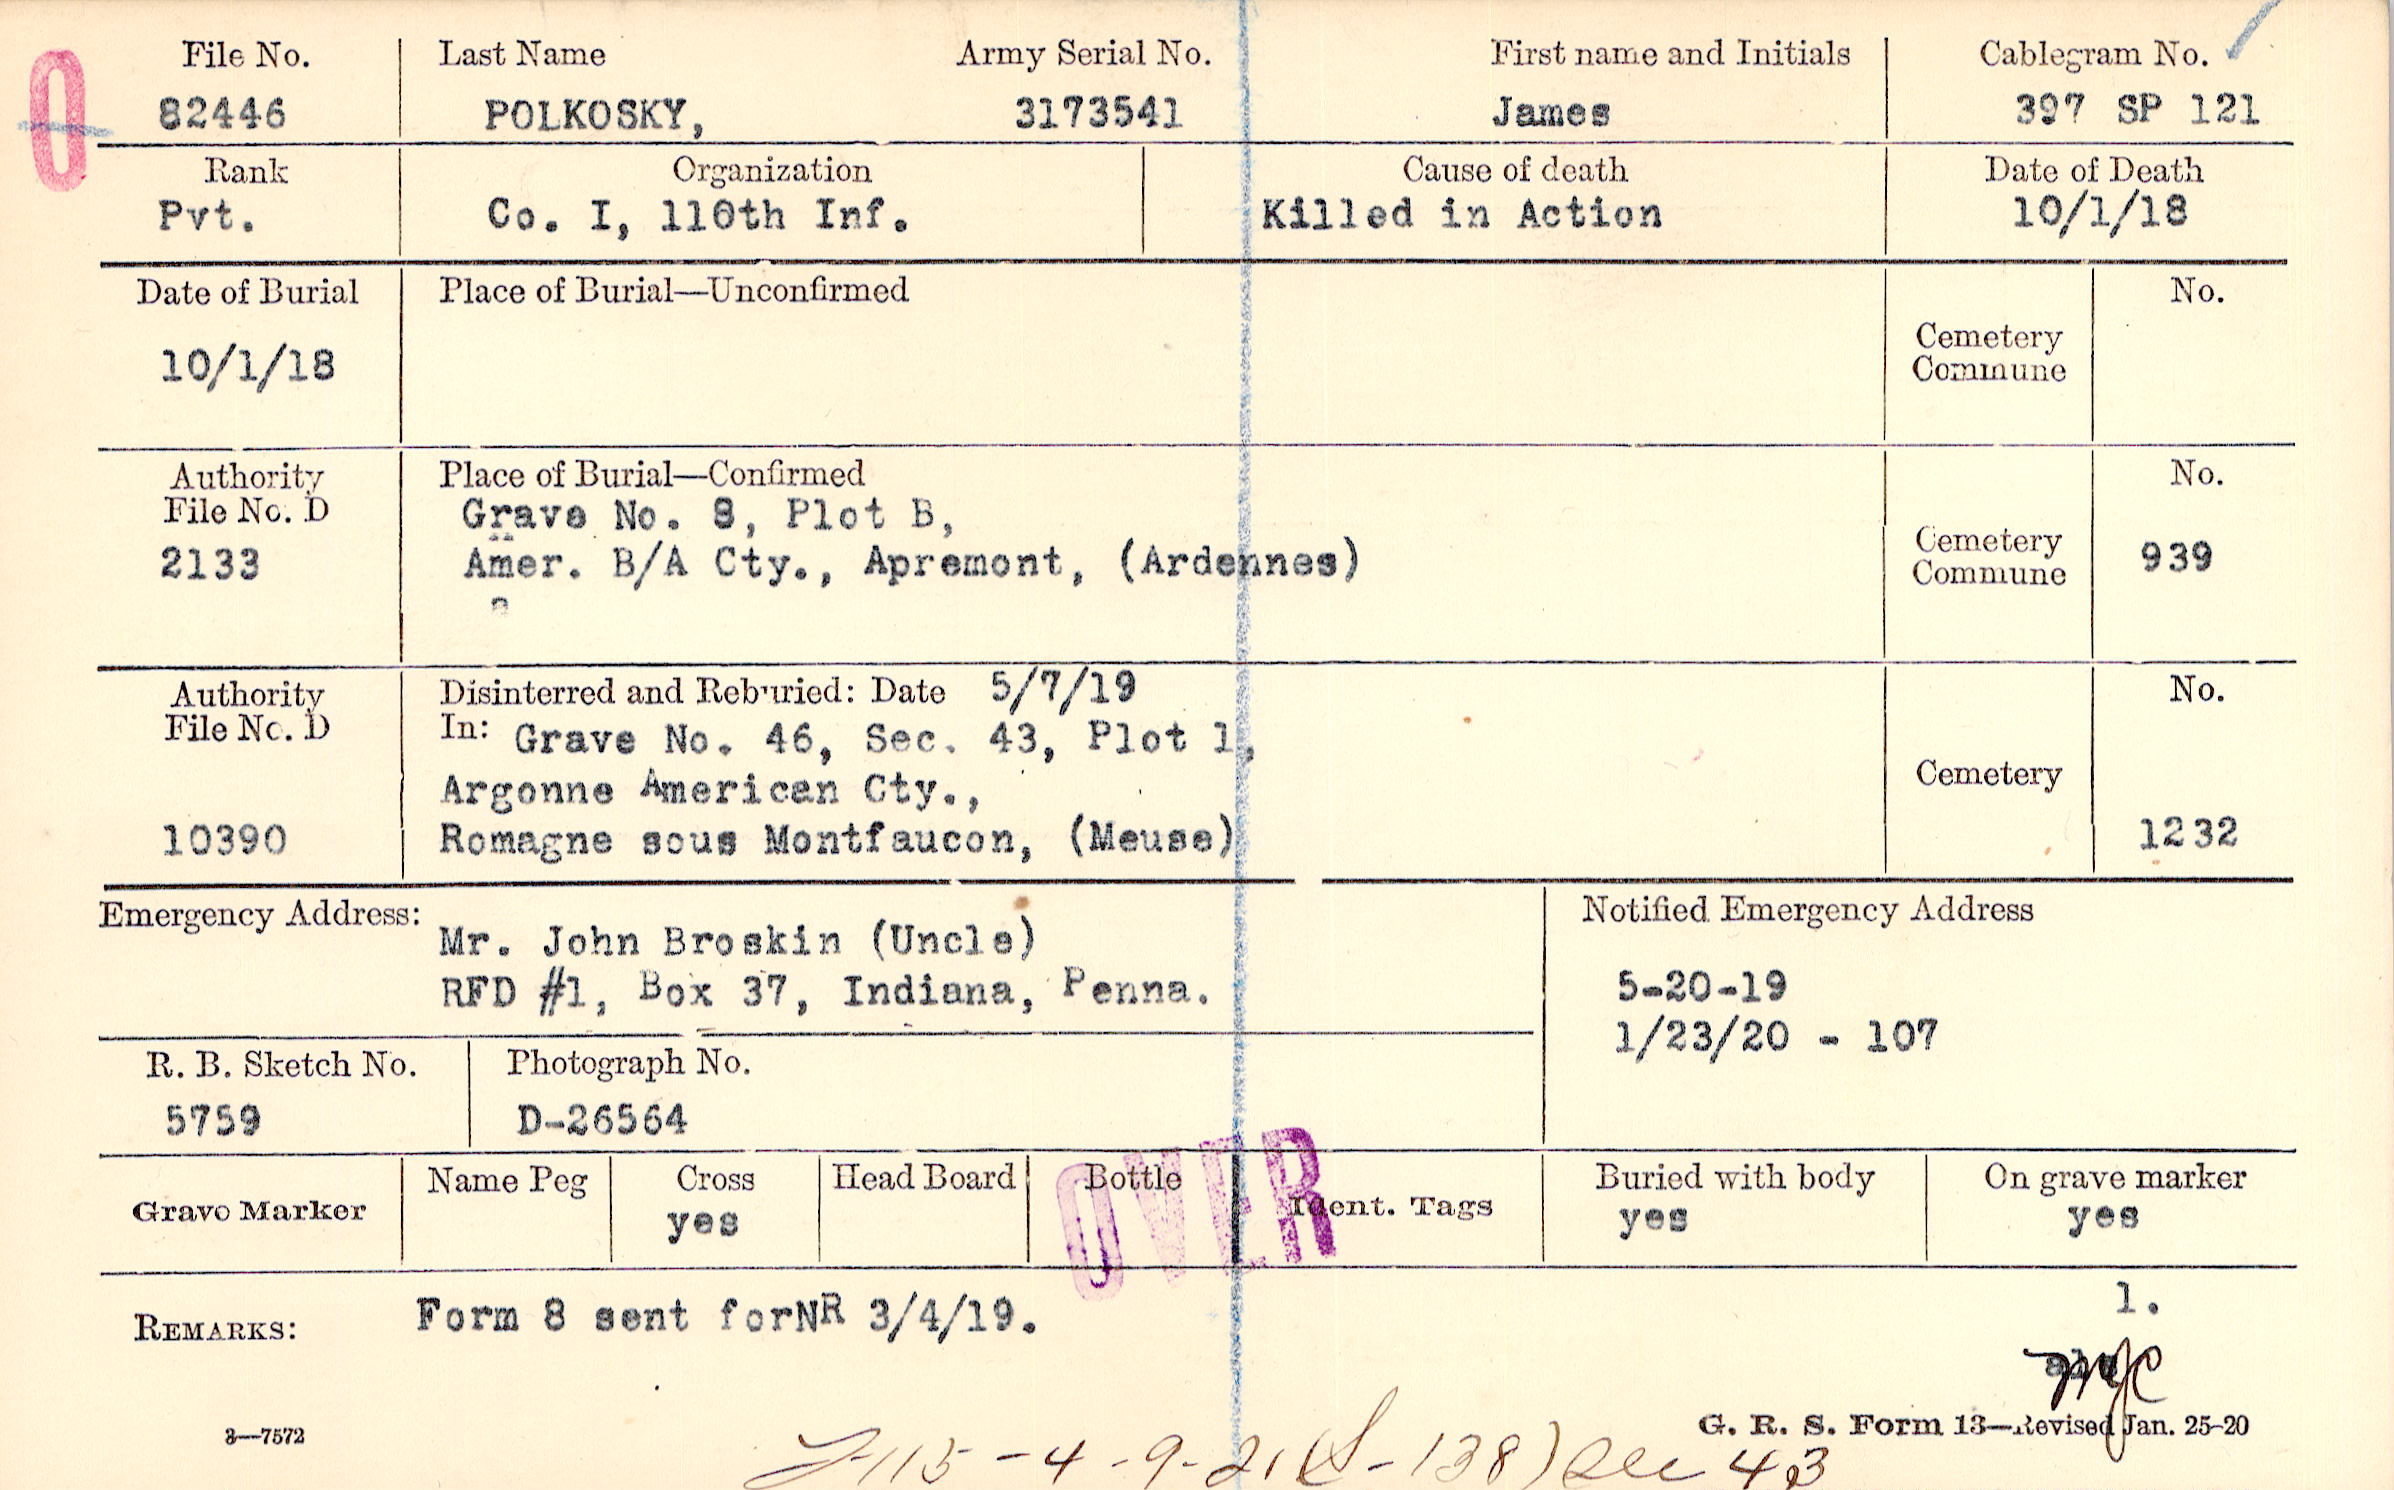 File No. Last Name Army Serial No. First name and Initials Cablegram No.
82446 POLKOSKY, 3173541 James 397 SP 121
Rank Organization Cause of death Date of Death
Pvt. Co. I, 110th Inf. Killed in Action 10/1/18
Date of Burial Place of Burial—Unconfirmed No.
Cemetery
Commune
10/1/18
Authority Place of Burial—Confirmed No.
File No. D Grave No. 8, Plot B,
Cemetery
2133 Amer. B/A Cty., Apremont, (Ardennes) 939
Commune
Authority Disinterred and Reburied: Date 5/7/19 No.
File No. D In: Grave No. 46, Sec. 43, Plot 1,
Cemetery
Argonne American Cty.,
10390 Romagne sous Montfaucon, (Meuse) 1232
Emergency Address: Notified Emergency Address
Mr. John Broskin (Uncle)
RFD #1, Box 37, Indiana, Penna. 5-20-19
1/23/20 - 107
R. B. Sketch No. Photograph No.
5759 D-26564
OVER
Name Peg Cross Head Board Bottle Buried with body On grave marker
Grave Marker yes Ident. Tags yes yes
1.
REMARKS: Form 8 sent forNR 3/4/19.
3—7572 G. R. S. Form 13—Revised Jan. 25-20
-115-4-9-21 (S-138) Sec 43